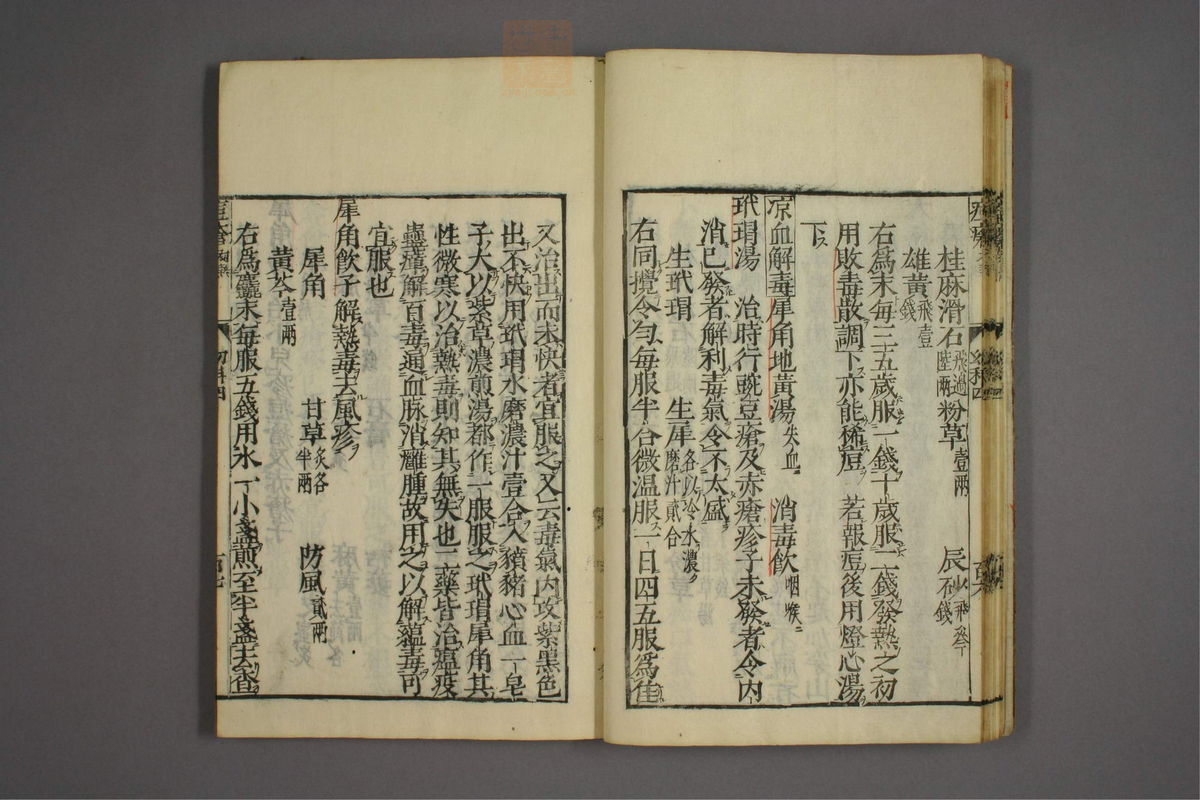 桂麻滑石飛過陸兩粉草壹兩　辰砂飛叄錢
雄黃飛壹錢
右爲末每三五歲服一錢十歲服二錢發熱之初
用敗毒散調下亦能稀痘　若報痘後用燈心湯
下ス
凉血解毒犀角地黃湯失血　消毒飲咽喉ニ
玳瑁湯　治時行豌豆瘡及赤瘡疹子未發者令内
消已發者解利毒氣令不太盛
生玳瑁　生犀各以冷水濃ク磨汁貳合
右同攪令勻每服半合微温服一日四五服爲佳
又治出而未快者宜服之又云毒氣内攻紫黑色
出不快用玳瑁水磨濃汁壹合入豶豬心血一皂
子大以紫草濃煎湯都作一服服之玳瑁犀角其
性微寒以治熱毒則知其無失也二藥皆治瘟疫
蠱瘴解百毒通血脉消癰腫故用之以解蘊毒可
宜服也
犀角飲子解熱毒去風疹
犀角　甘草炙各半兩　防風貳兩
黃芩壹兩
右爲麤末每服五錢用水一小盞煎至半盞去滓